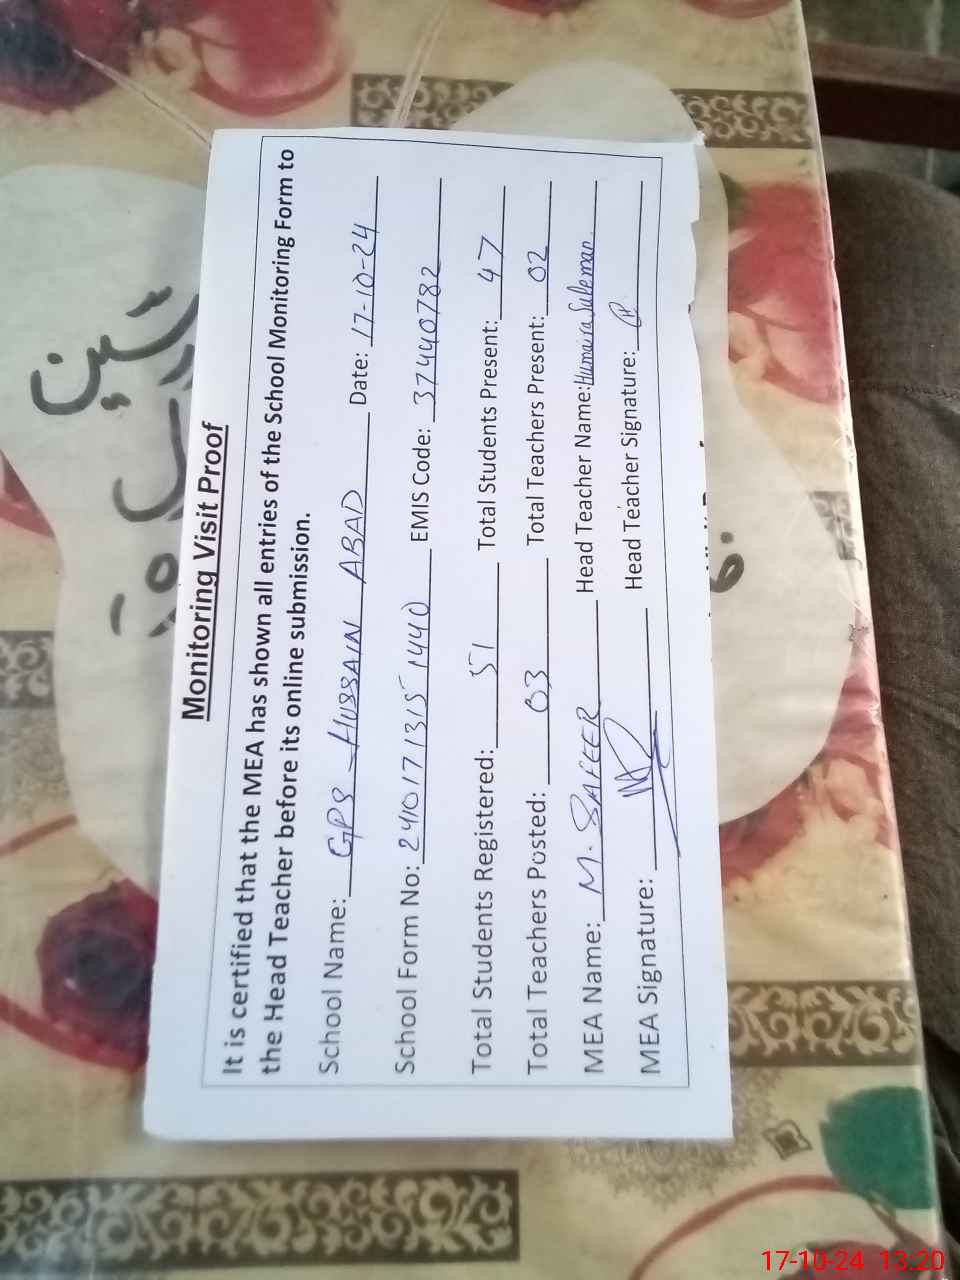 Monitoring Visit Proof
It is certified that the MEA has shown all entries of the School Monitoring Form to
the Head Teacher before its online submission.
School Name: GPS HUSSAIN ABAD Date: 17-10-24
School Form No: 24101713151440 EMIS Code: 37440782
Total Students Registered: 51 Total Students Present: 47
Total Teachers Posted: 03 Total Teachers Present: 02
MEA Name: M. SAFEER Head Teacher Name: Humaira Suleman
MEA Signature: Head Teacher Signature:
17-10-24 13:20